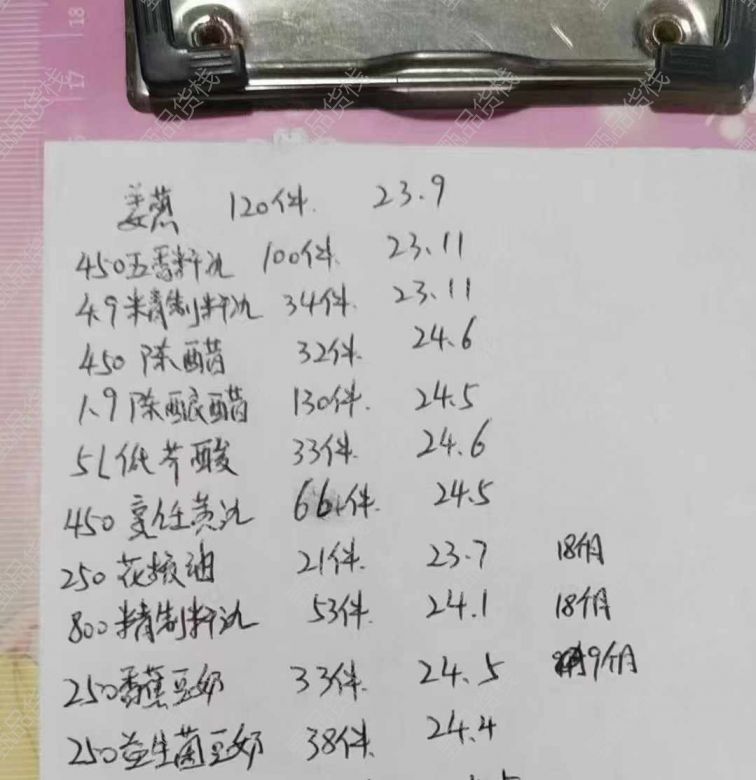 姜蒸 120件. 23.9
450五香料氿 100件. 23.11
4.9精制料氿 34件. 23.11
450陈醋 32件. 24.6
1.9陈酿醋 130件. 24.5
5L低芥酸 33件. 24.6
450烹任黄氿 66件. 24.5
250花椒油 21件. 23.7 18个月
800精制料氿 53件. 24.1 18个月
250香蕉豆奶 33件. 24.5 9个月
250益生菌豆奶 38件. 24.4